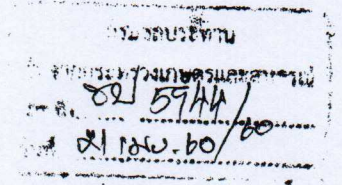 กรมชลประทาน
กระทรวงเกษตรและสหกรณ์
ชป 5944/60
วันที่ 21 เมย. 60